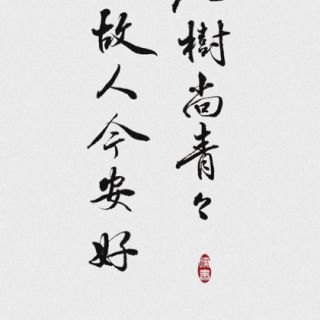 樹尚青々
故人今安好